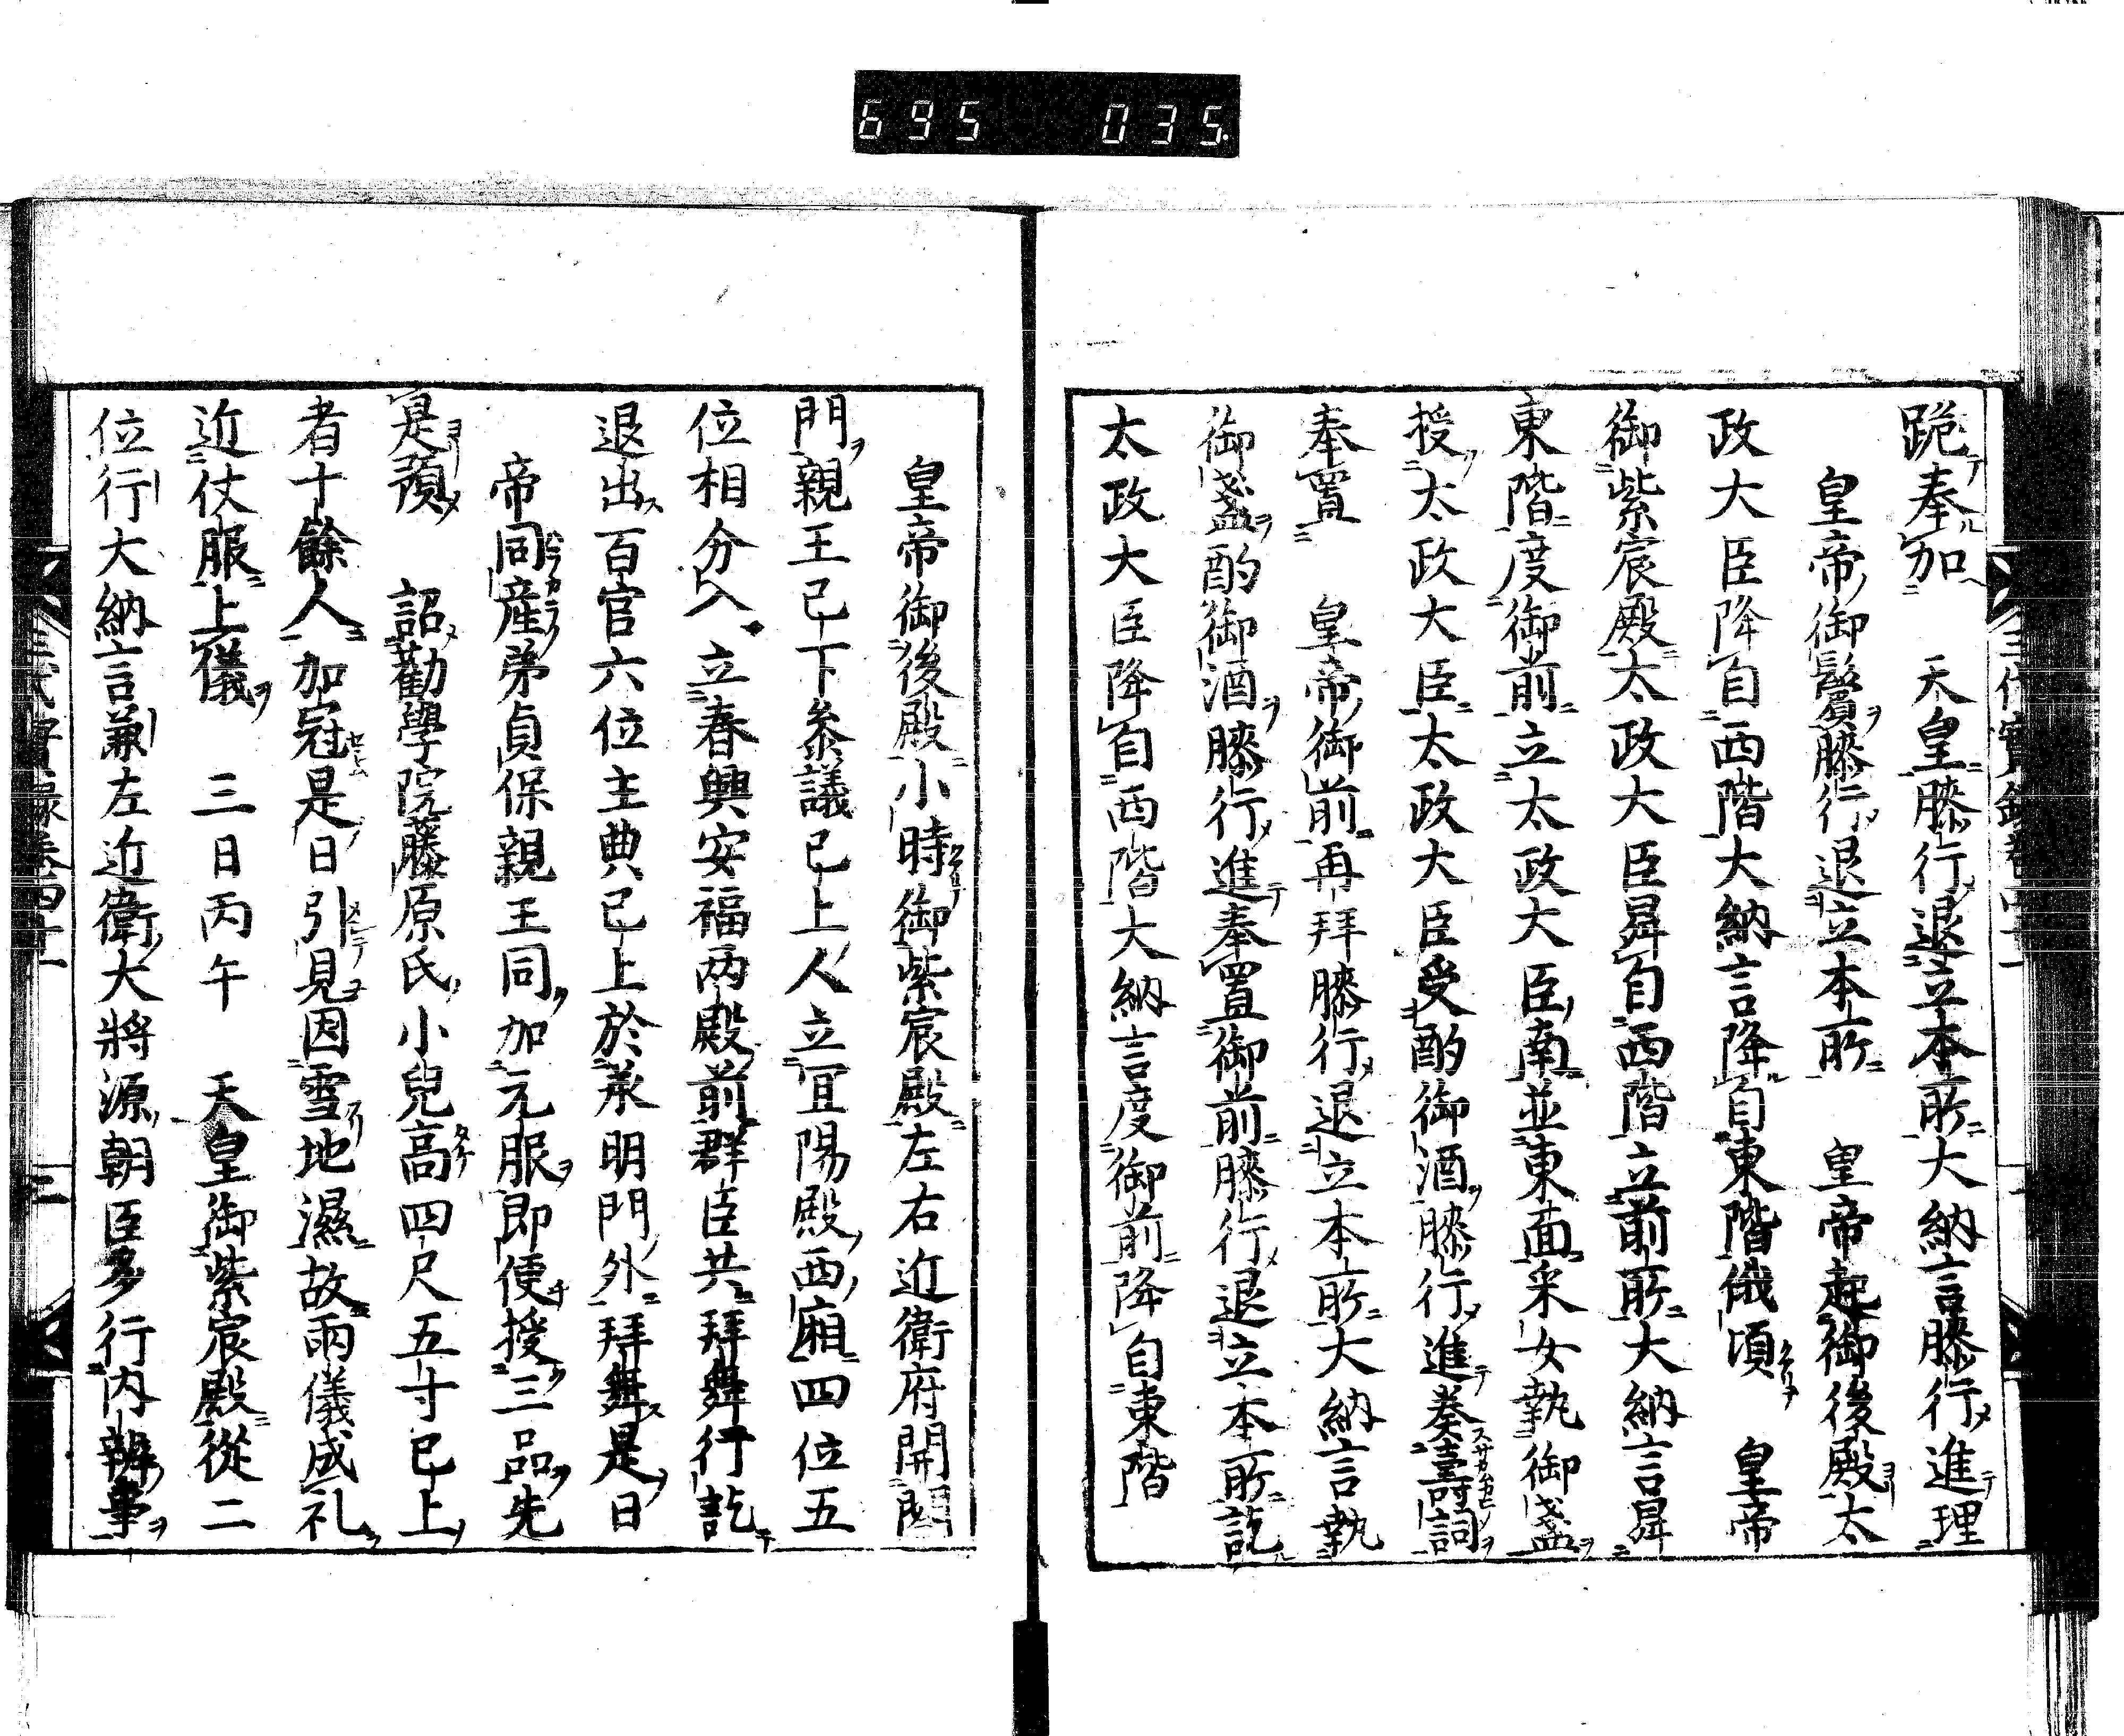 695 035
跪奉加 天皇膝行退立本所大納言膝行進理
皇帝御鬢膝行退立本所 皇帝起御後殿太
政大臣降自西階大納言降自東階俄頃 皇帝
御紫宸殿太政大臣昇自西階立前所大納言昇
東階度御前立太政大臣南並東面采女執御盞
授太政大臣太政大臣受酌御酒膝行進奏壽詞
奉置 皇帝御前再拜膝行退立本所大納言執
御盞酌御酒膝行進奉置御前膝行退立本所訖
太政大臣降自西階大納言度御前降自東階
皇帝御後殿小時御紫宸殿左右近衛府開閤
門親王已下叅議已上人立宜陽殿西廂四位五
位相分入立春興安福兩殿前群臣共拜舞行訖
退出百官六位主典已上於承明門外拜舞是日
帝同産弟貞保親王同加元服即便授三品先
是預 詔勸學院藤原氏小兒高四尺五寸已上
者十餘人加冠是日引見因雪地濕故雨儀成礼
近仗服上儀 三日丙午 天皇御紫宸殿從二
位行大納言兼左近衛大將源朝臣多行内辨事
三代實録卷四十一 三